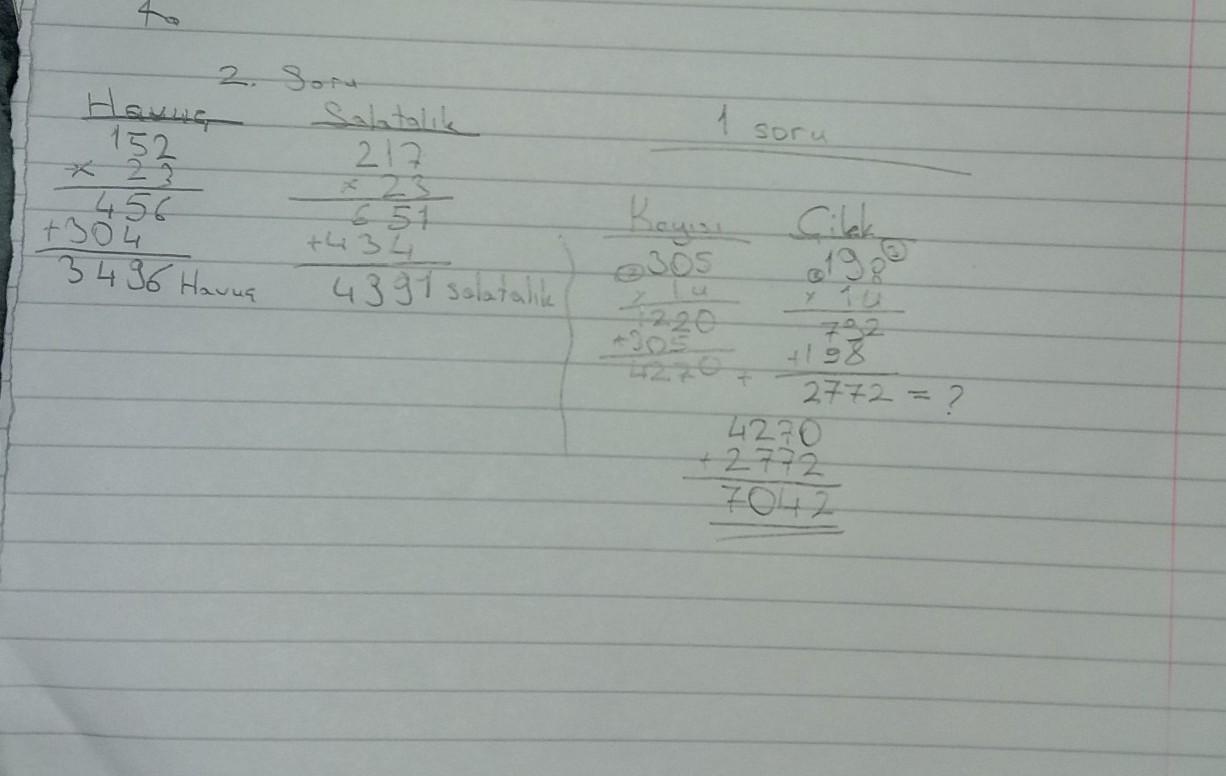 2. Soru
Havuç
152
x 23
456
+304
3496 Havuç
Salatalık
217
x 23
651
+434
4391 salatalık
1 soru
Kayısı
305
x 14
1220
+305
4270 +
Çilek
198
x 14
792
+198
2772 = ?
4270
+ 2772
7042